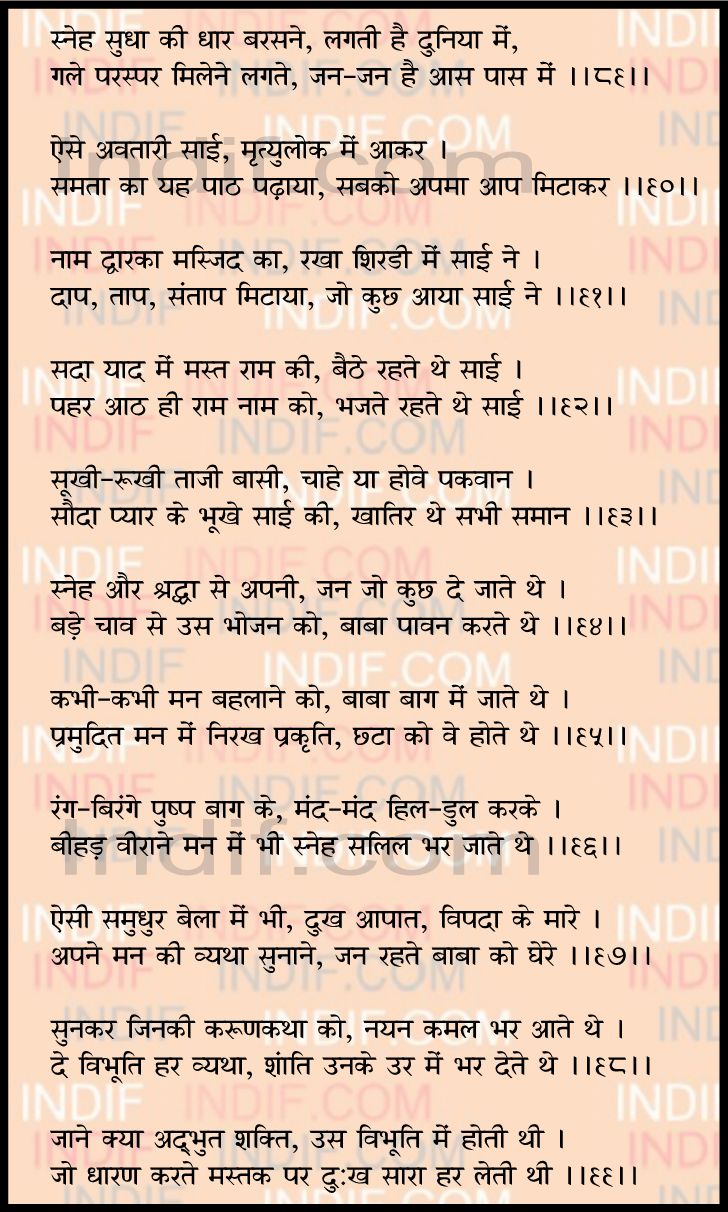 स्नेह सुधा की धार बरसने, लगती है दुनिया में,
गले परस्पर मिलेने लगते, जन-जन है आस पास में ।।८९।।
ऐसे अवतारी साई, मृत्युलोक में आकर ।
समता का यह पाठ पढ़ाया, सबको अपमा आप मिटाकर ।।९०।।
नाम द्वारका मस्जिद का, रखा शिरडी में साई ने ।
दाप, ताप, संताप मिटाया, जो कुछ आया साई ने ।।९१।।
सदा याद में मस्त राम की, बैठे रहते थे साई ।
पहर आठ ही राम नाम को, भजते रहते थे साई ।।९२।।
सूखी-रूखी ताजी बासी, चाहे या होवे पकवान ।
सौदा प्यार के भूखे साई की, खातिर थे सभी समान ।।९३।।
स्नेह और श्रद्धा से अपनी, जन जो कुछ दे जाते थे ।
बड़े चाव से उस भोजन को, बाबा पावन करते थे ।।९४।।
कभी-कभी मन बहलाने को, बाबा बाग में जाते थे ।
प्रमुदित मन में निरख प्रकृति, छटा को वे होते थे ।।९५।।
रंग-बिरंगे पुष्प बाग के, मंद-मंद हिल-डुल करके ।
बीहड़ वीराने मन में भी स्नेह सलिल भर जाते थे ।।९६।।
ऐसी समुधुर बेला में भी, दुख आपात, विपदा के मारे ।
अपने मन की व्यथा सुनाने, जन रहते बाबा को घेरे ।।९७।।
सुनकर जिनकी करूणकथा को, नयन कमल भर आते थे ।
दे विभूति हर व्यथा, शांति उनके उर में भर देते थे ।।९८।।
जाने क्या अद्भुत शक्ति, उस विभूति में होती थी ।
जो धारण करते मस्तक पर दु:ख सारा हर लेती थी ।।९९।।
Indif.com
Indif.com
INDIF.COM